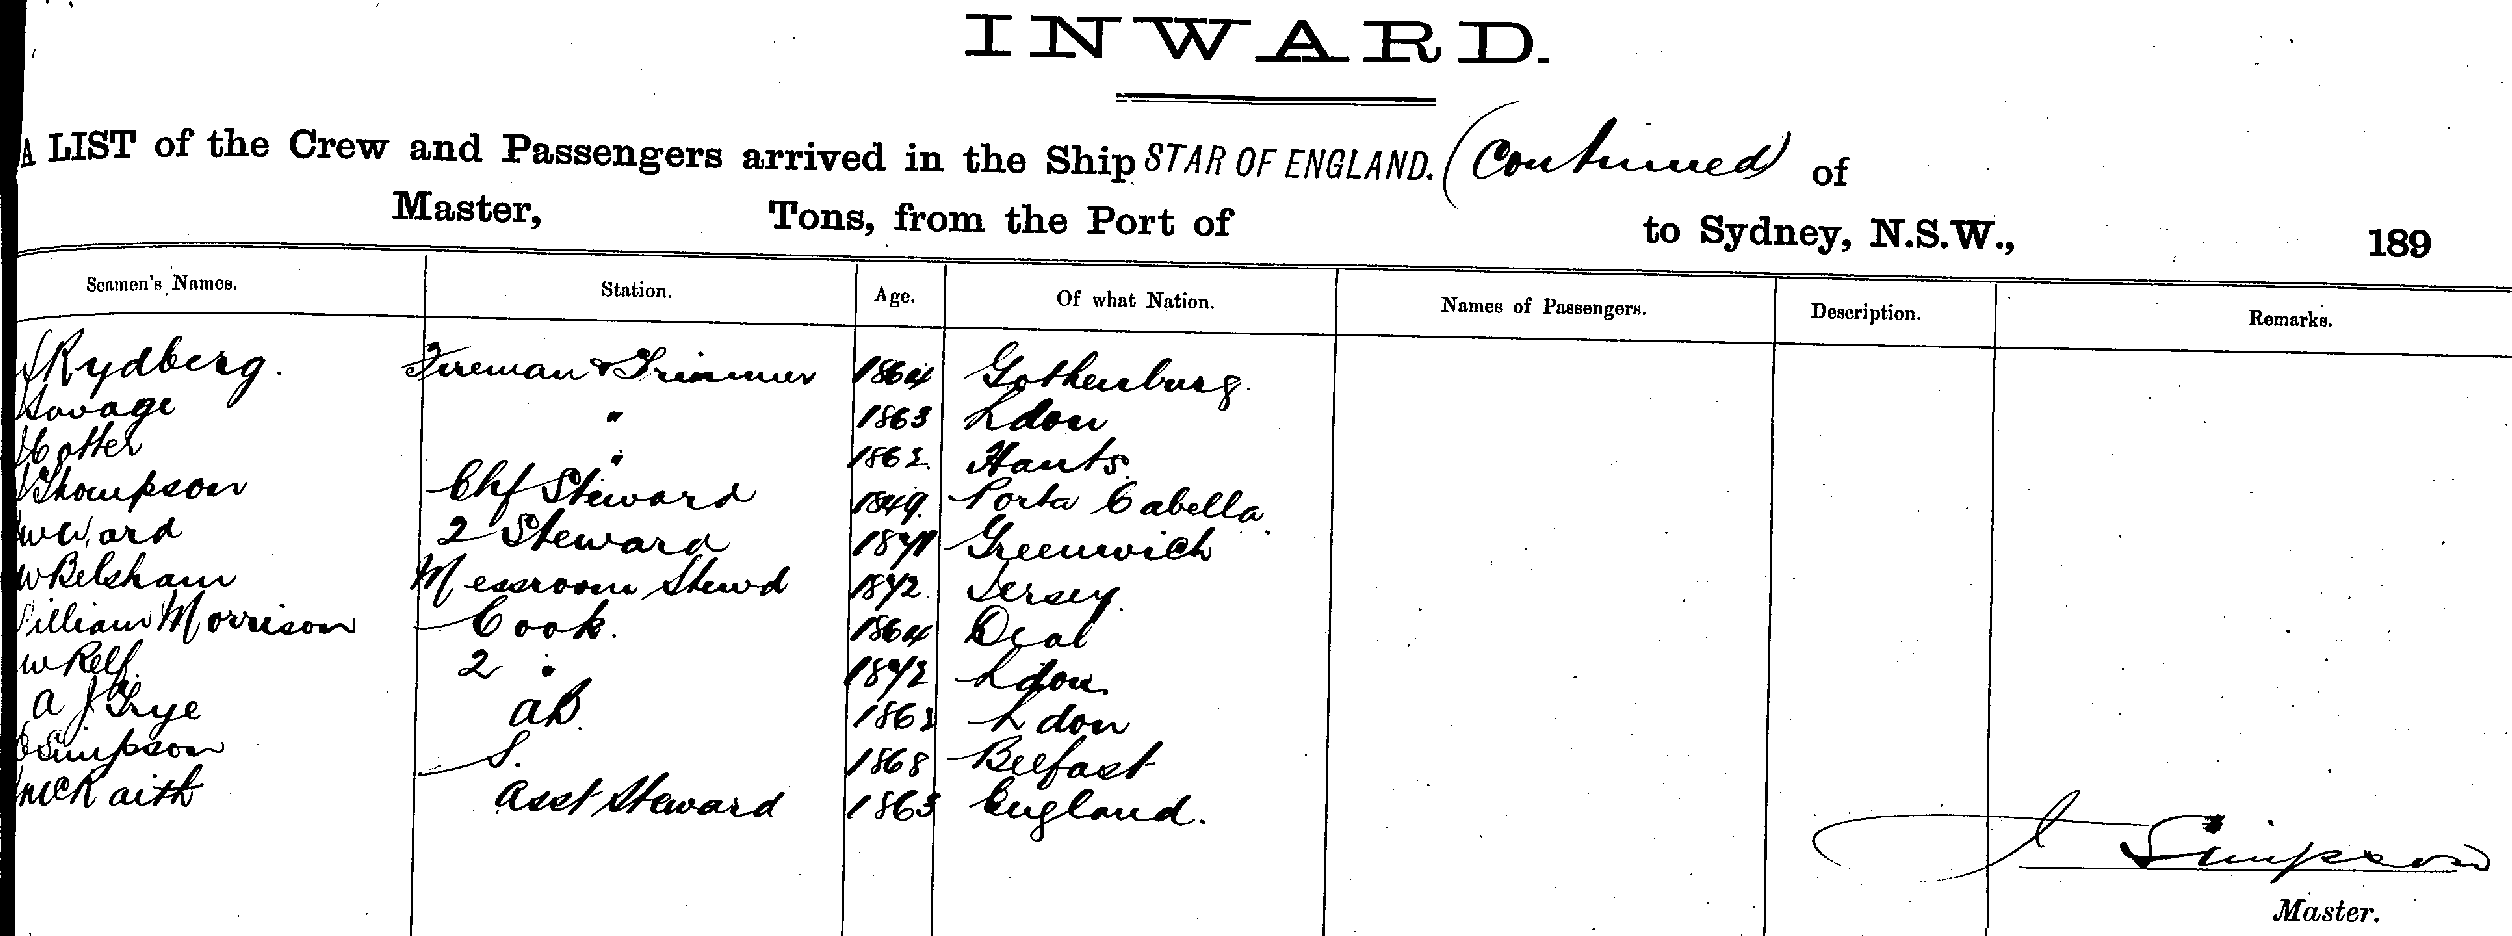 INWARD.
A LIST of the Crew and Passengers arrived in the Ship STAR OF ENGLAND. (Continued) of
Master, Tons, from the Port of to Sydney, N.S.W., 189
Seamen's Names. Station. Age. Of what Nation. Names of Passengers. Description. Remarks.
Rydberg. Fireman & Trimmer 1864 Gothenburg.
Savage " 1863 Ldon
Cotter " 1862 Hants.
Thompson Chf Steward 1849. Porta Cabella
W Ward 2 Steward 1871 Greenwich
W Belsham Messroom Stewd 1872. Jersey.
William Morrison Cook. 1864 Deal
W Relf. 2 " 1872 Ldon.
A J. Frye AB. 1862 Ldon
Simpson S. 1868 Belfast
McKaith Asst Steward 1863 England.
J Simpson
Master.